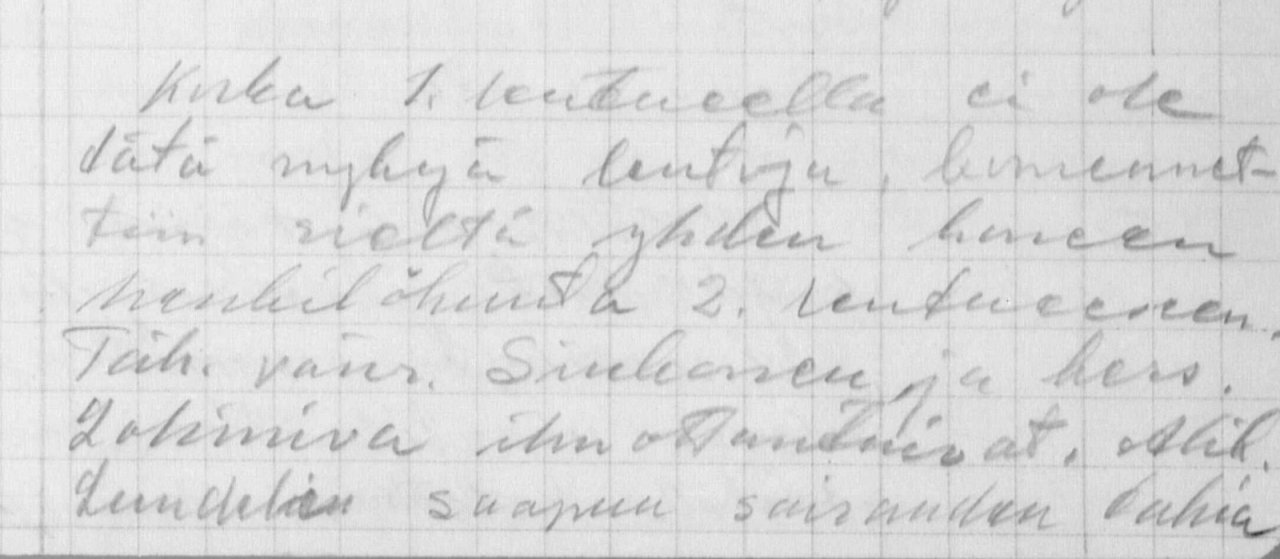 Koska 1. lentueella ei ole
tätä nykyä lentäjiä, komennet-
tiin sieltä yhden koneen
henkilökunta 2. lentueeseen.
Täh. vänr. Sinkonen ja kers.
Lohiniva ilmottautuivat. Alik.
Lundelin saapuu sairauden takia